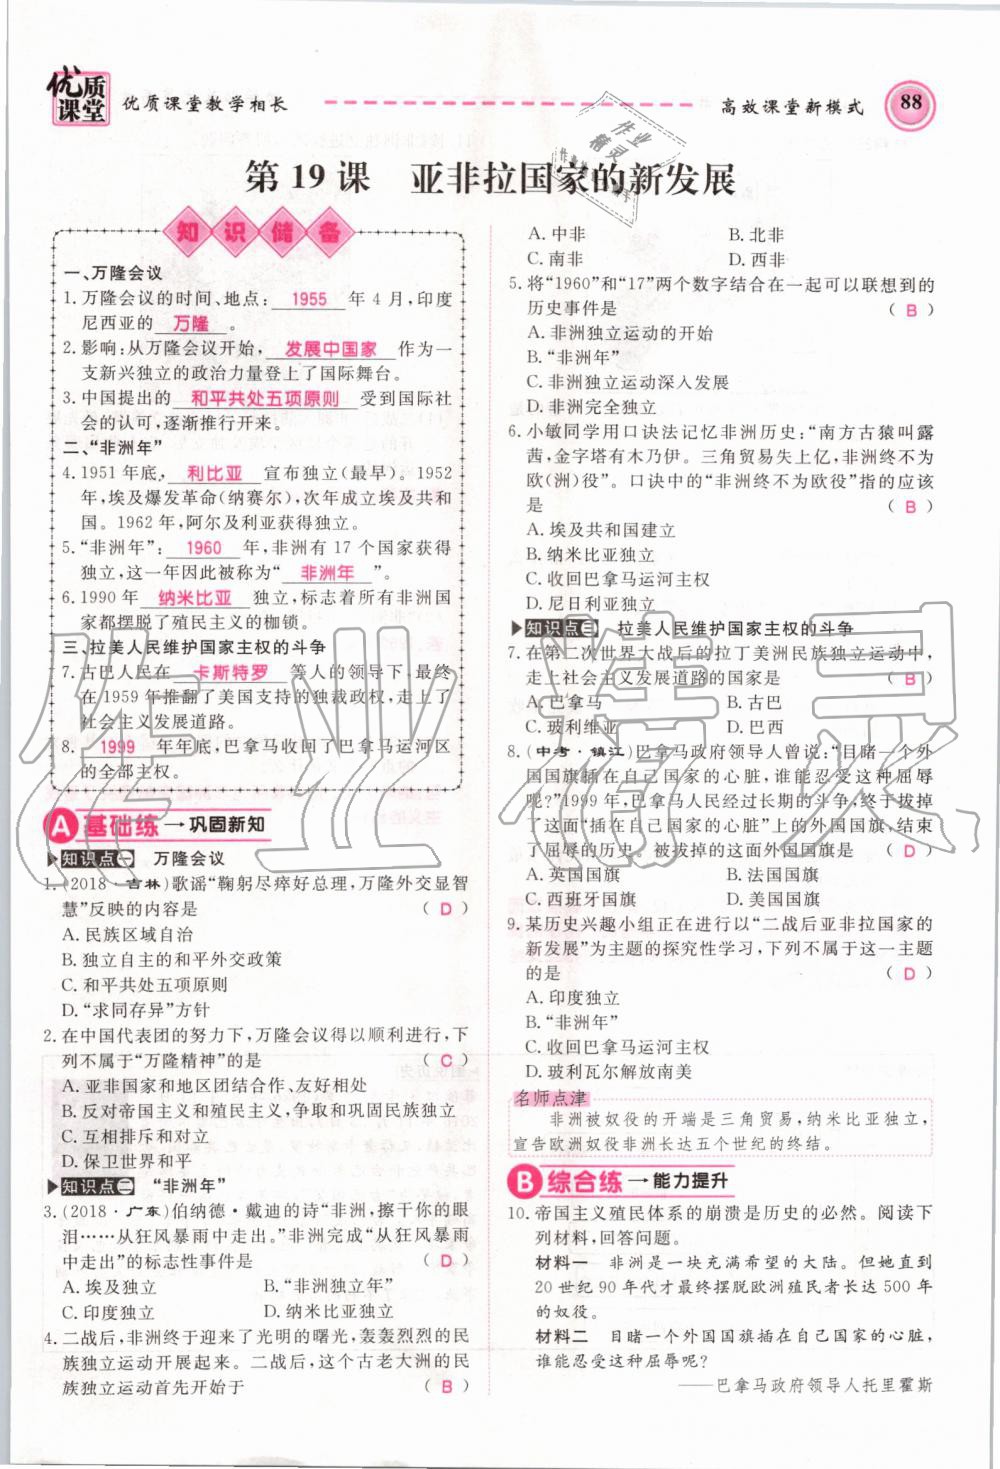 优质课堂
优质课堂教学相长
高效课堂新模式
88
第19课　亚非拉国家的新发展
知识储备
一、万隆会议
1. 万隆会议的时间、地点：1955年4月，印度
尼西亚的万隆。
2. 影响：从万隆会议开始，发展中国家作为一
支新兴独立的政治力量登上了国际舞台。
3. 中国提出的和平共处五项原则受到国际社
会的认可，逐渐推行开来。
二、“非洲年”
4. 1951年底，利比亚宣布独立（最早）。1952
年，埃及爆发革命（纳赛尔），次年成立埃及共和
国。1962年，阿尔及利亚获得独立。
5. “非洲年”：1960年，非洲有17个国家获得
独立，这一年因此被称为“非洲年”。
6. 1990年纳米比亚独立，标志着所有非洲国
家都摆脱了殖民主义的枷锁。
三、拉美人民维护国家主权的斗争
7. 古巴人民在卡斯特罗等人的领导下，最终
在1959年推翻了美国支持的独裁政权，走上了
社会主义发展道路。
8. 1999年年底，巴拿马收回了巴拿马运河区
的全部主权。
A 基础练→巩固新知
知识点一　万隆会议
1. (2018·吉林)歌谣“鞠躬尽瘁好总理，万隆外交显智
慧”反映的内容是（D）
A. 民族区域自治
B. 独立自主的和平外交政策
C. 和平共处五项原则
D. “求同存异”方针
2. 在中国代表团的努力下，万隆会议得以顺利进行，下
列不属于“万隆精神”的是（C）
A. 亚非国家和地区团结合作、友好相处
B. 反对帝国主义和殖民主义，争取和巩固民族独立
C. 互相排斥和对立
D. 保卫世界和平
知识点二　“非洲年”
3. (2018·广东)伯纳德·戴迪的诗“非洲，擦干你的眼
泪……从狂风暴雨中走出。”非洲完成“从狂风暴雨
中走出”的标志性事件是（D）
A. 埃及独立　B. “非洲独立年”
C. 印度独立　D. 纳米比亚独立
4. 二战后，非洲终于迎来了光明的曙光，轰轰烈烈的民
族独立运动开展起来。二战后，这个古老大洲的民
族独立运动首先开始于（B）
A. 中非　B. 北非
C. 南非　D. 西非
5. 将“1960”和“17”两个数字结合在一起可以联想到的
历史事件是（B）
A. 非洲独立运动的开始
B. “非洲年”
C. 非洲独立运动深入发展
D. 非洲完全独立
6. 小敏同学用口诀法记忆非洲历史：“南方古猿叫露
茜，金字塔有木乃伊。三角贸易失上亿，非洲终不为
欧(洲)役”。口诀中的“非洲终不为欧役”指的应该
是（B）
A. 埃及共和国建立
B. 纳米比亚独立
C. 收回巴拿马运河主权
D. 尼日利亚独立
知识点三　拉美人民维护国家主权的斗争
7. 在第二次世界大战后的拉丁美洲民族独立运动中，
走上社会主义发展道路的国家是（B）
A. 巴拿马　B. 古巴
C. 玻利维亚　D. 巴西
8. (中考·镇江)巴拿马政府领导人曾说：“目睹一个外
国国旗插在自己国家的心脏，谁能忍受这种屈辱
呢？”1999年，巴拿马人民经过长期的斗争，终于拔掉
了这面“插在自己国家的心脏”上的外国国旗，结束
了屈辱的历史。被拔掉的这面外国国旗是（D）
A. 英国国旗　B. 法国国旗
C. 西班牙国旗　D. 美国国旗
9. 某历史兴趣小组正在进行以“二战后亚非拉国家的
新发展”为主题的探究性学习，下列不属于这一主题
的是（D）
A. 印度独立
B. “非洲年”
C. 收回巴拿马运河主权
D. 玻利瓦尔解放南美
名师点津
非洲被奴役的开端是三角贸易，纳米比亚独立，
宣告欧洲奴役非洲长达五个世纪的终结。
B 综合练→能力提升
10. 帝国主义殖民体系的崩溃是历史的必然。阅读下
列材料，回答问题。
材料一　非洲是一块充满希望的大陆。但她直到
20世纪90年代才最终摆脱欧洲殖民者长达500年
的奴役。
材料二　目睹一个外国国旗插在自己国家的心脏，
谁能忍受这种屈辱呢？
——巴拿马政府领导人托里霍斯
作业精灵